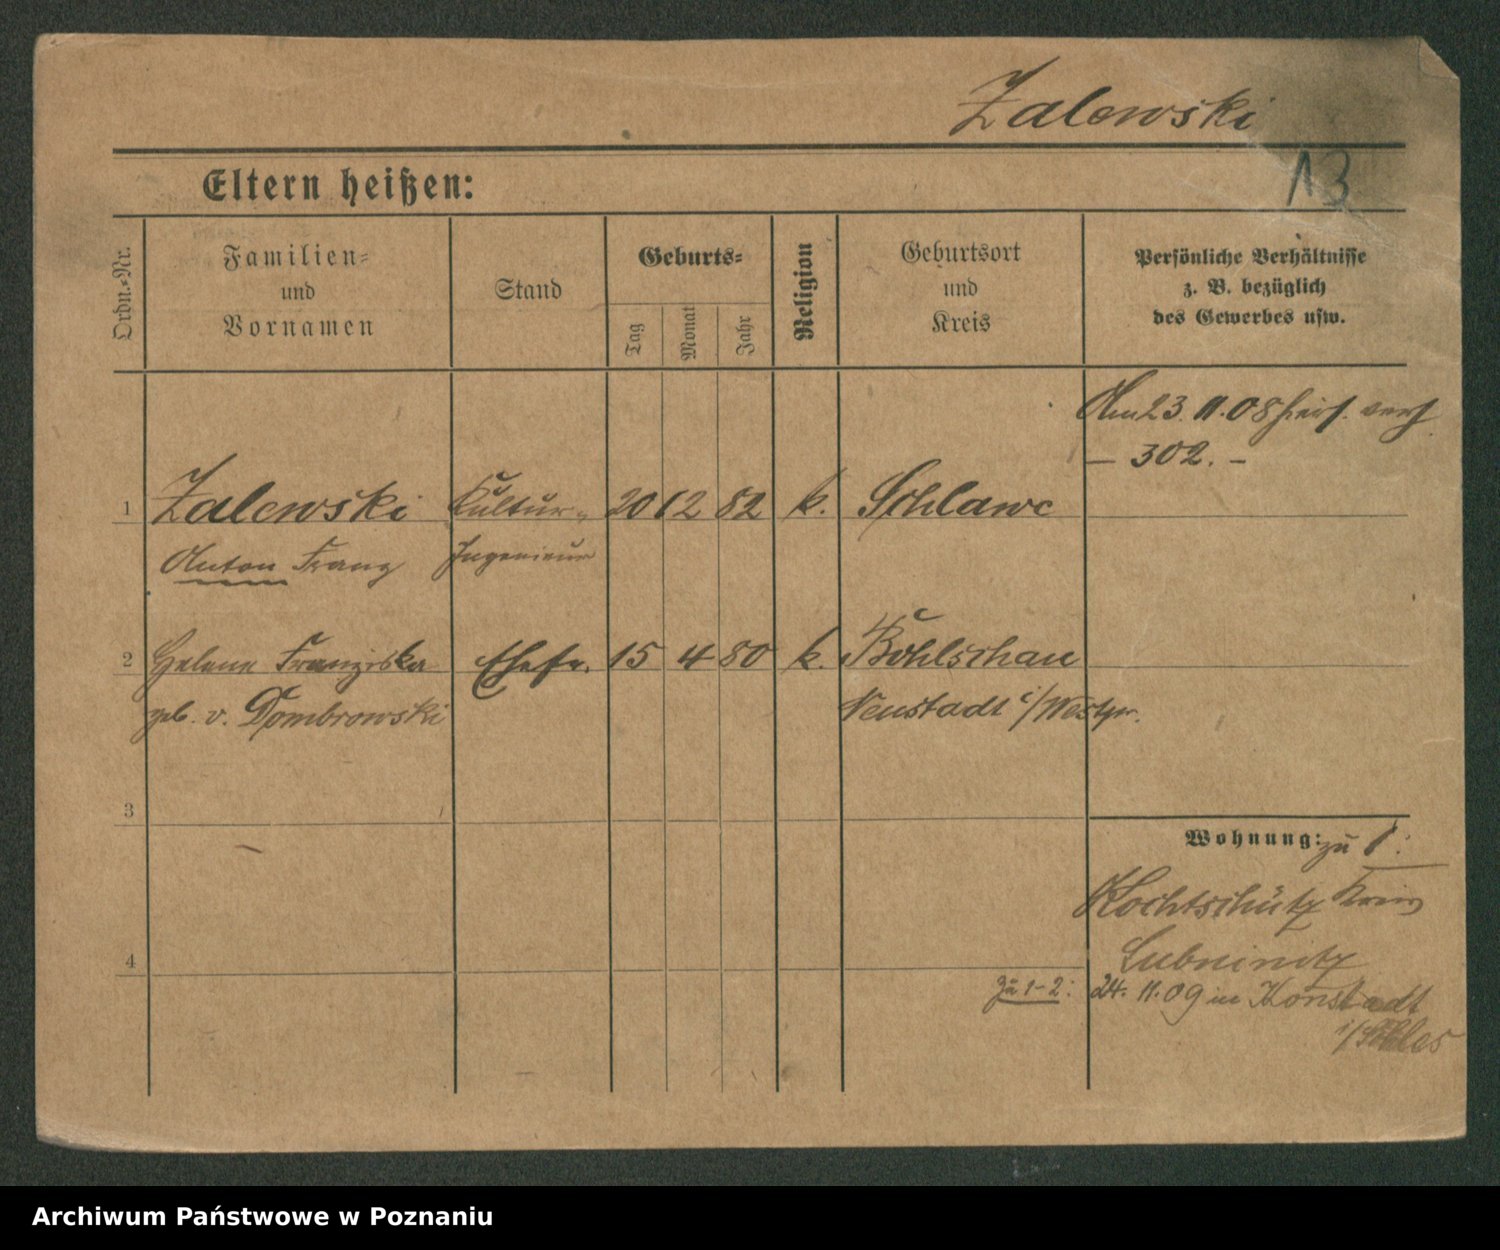 Zalewski
13
Eltern heißen:
Ordn.-Nr.
Familien-
und
Vornamen
Stand
Geburts-
Tag
Monat
Jahr
Religion
Geburtsort
und
Kreis
Persönliche Verhältnisse
z. B. bezüglich
des Gewerbes usw.
Am 23.11.08 hiers. verh
– 302. –
1 Zalewski Kultur- 20 12 82 k. Schlawe
Anton Franz Ingenieur
2 Helene Franziska Ehefr. 15 4 80 k. Bohlschau
geb. v. Dombrowski Neustadt i/Westpr.
3
Wohnung: zu 1:
Kochtschütz Kreis
Lubninitz
4
zu 1-2: 24.11.09 in Konstadt
i/Schles
Archiwum Państwowe w Poznaniu